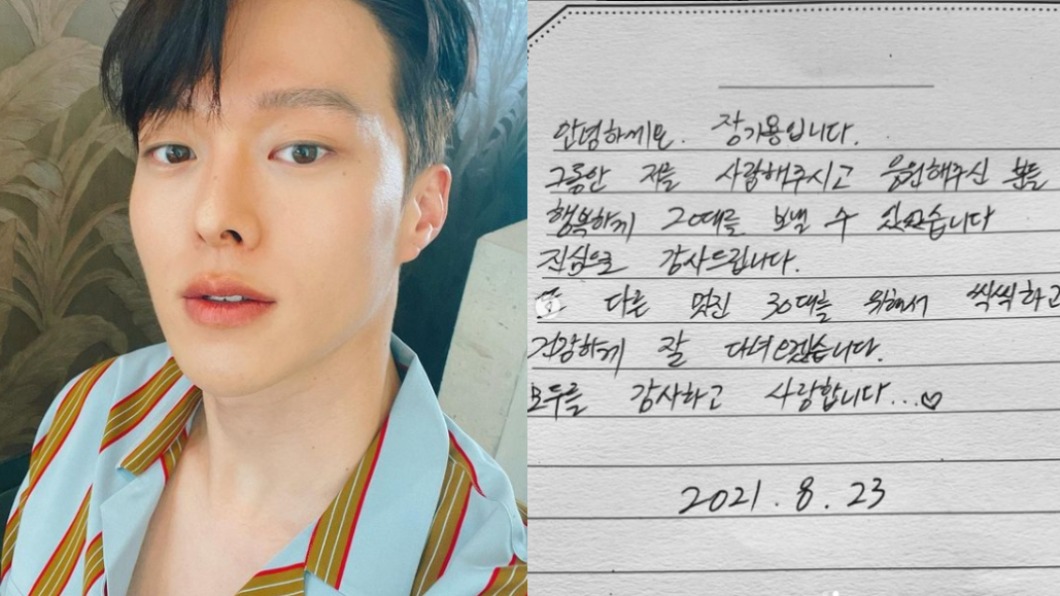 안녕하세요. 장기용입니다.
그동안 저를 사랑해주시고 응원해주신 분들
행복하게 20대를 보낼 수 있었습니다
진심으로 감사드립니다.
또 다른 멋진 30대를 위해서 씩씩하고
건강하게 잘 다녀오겠습니다.
모두들 감사하고 사랑합니다...♡
2021.8.23